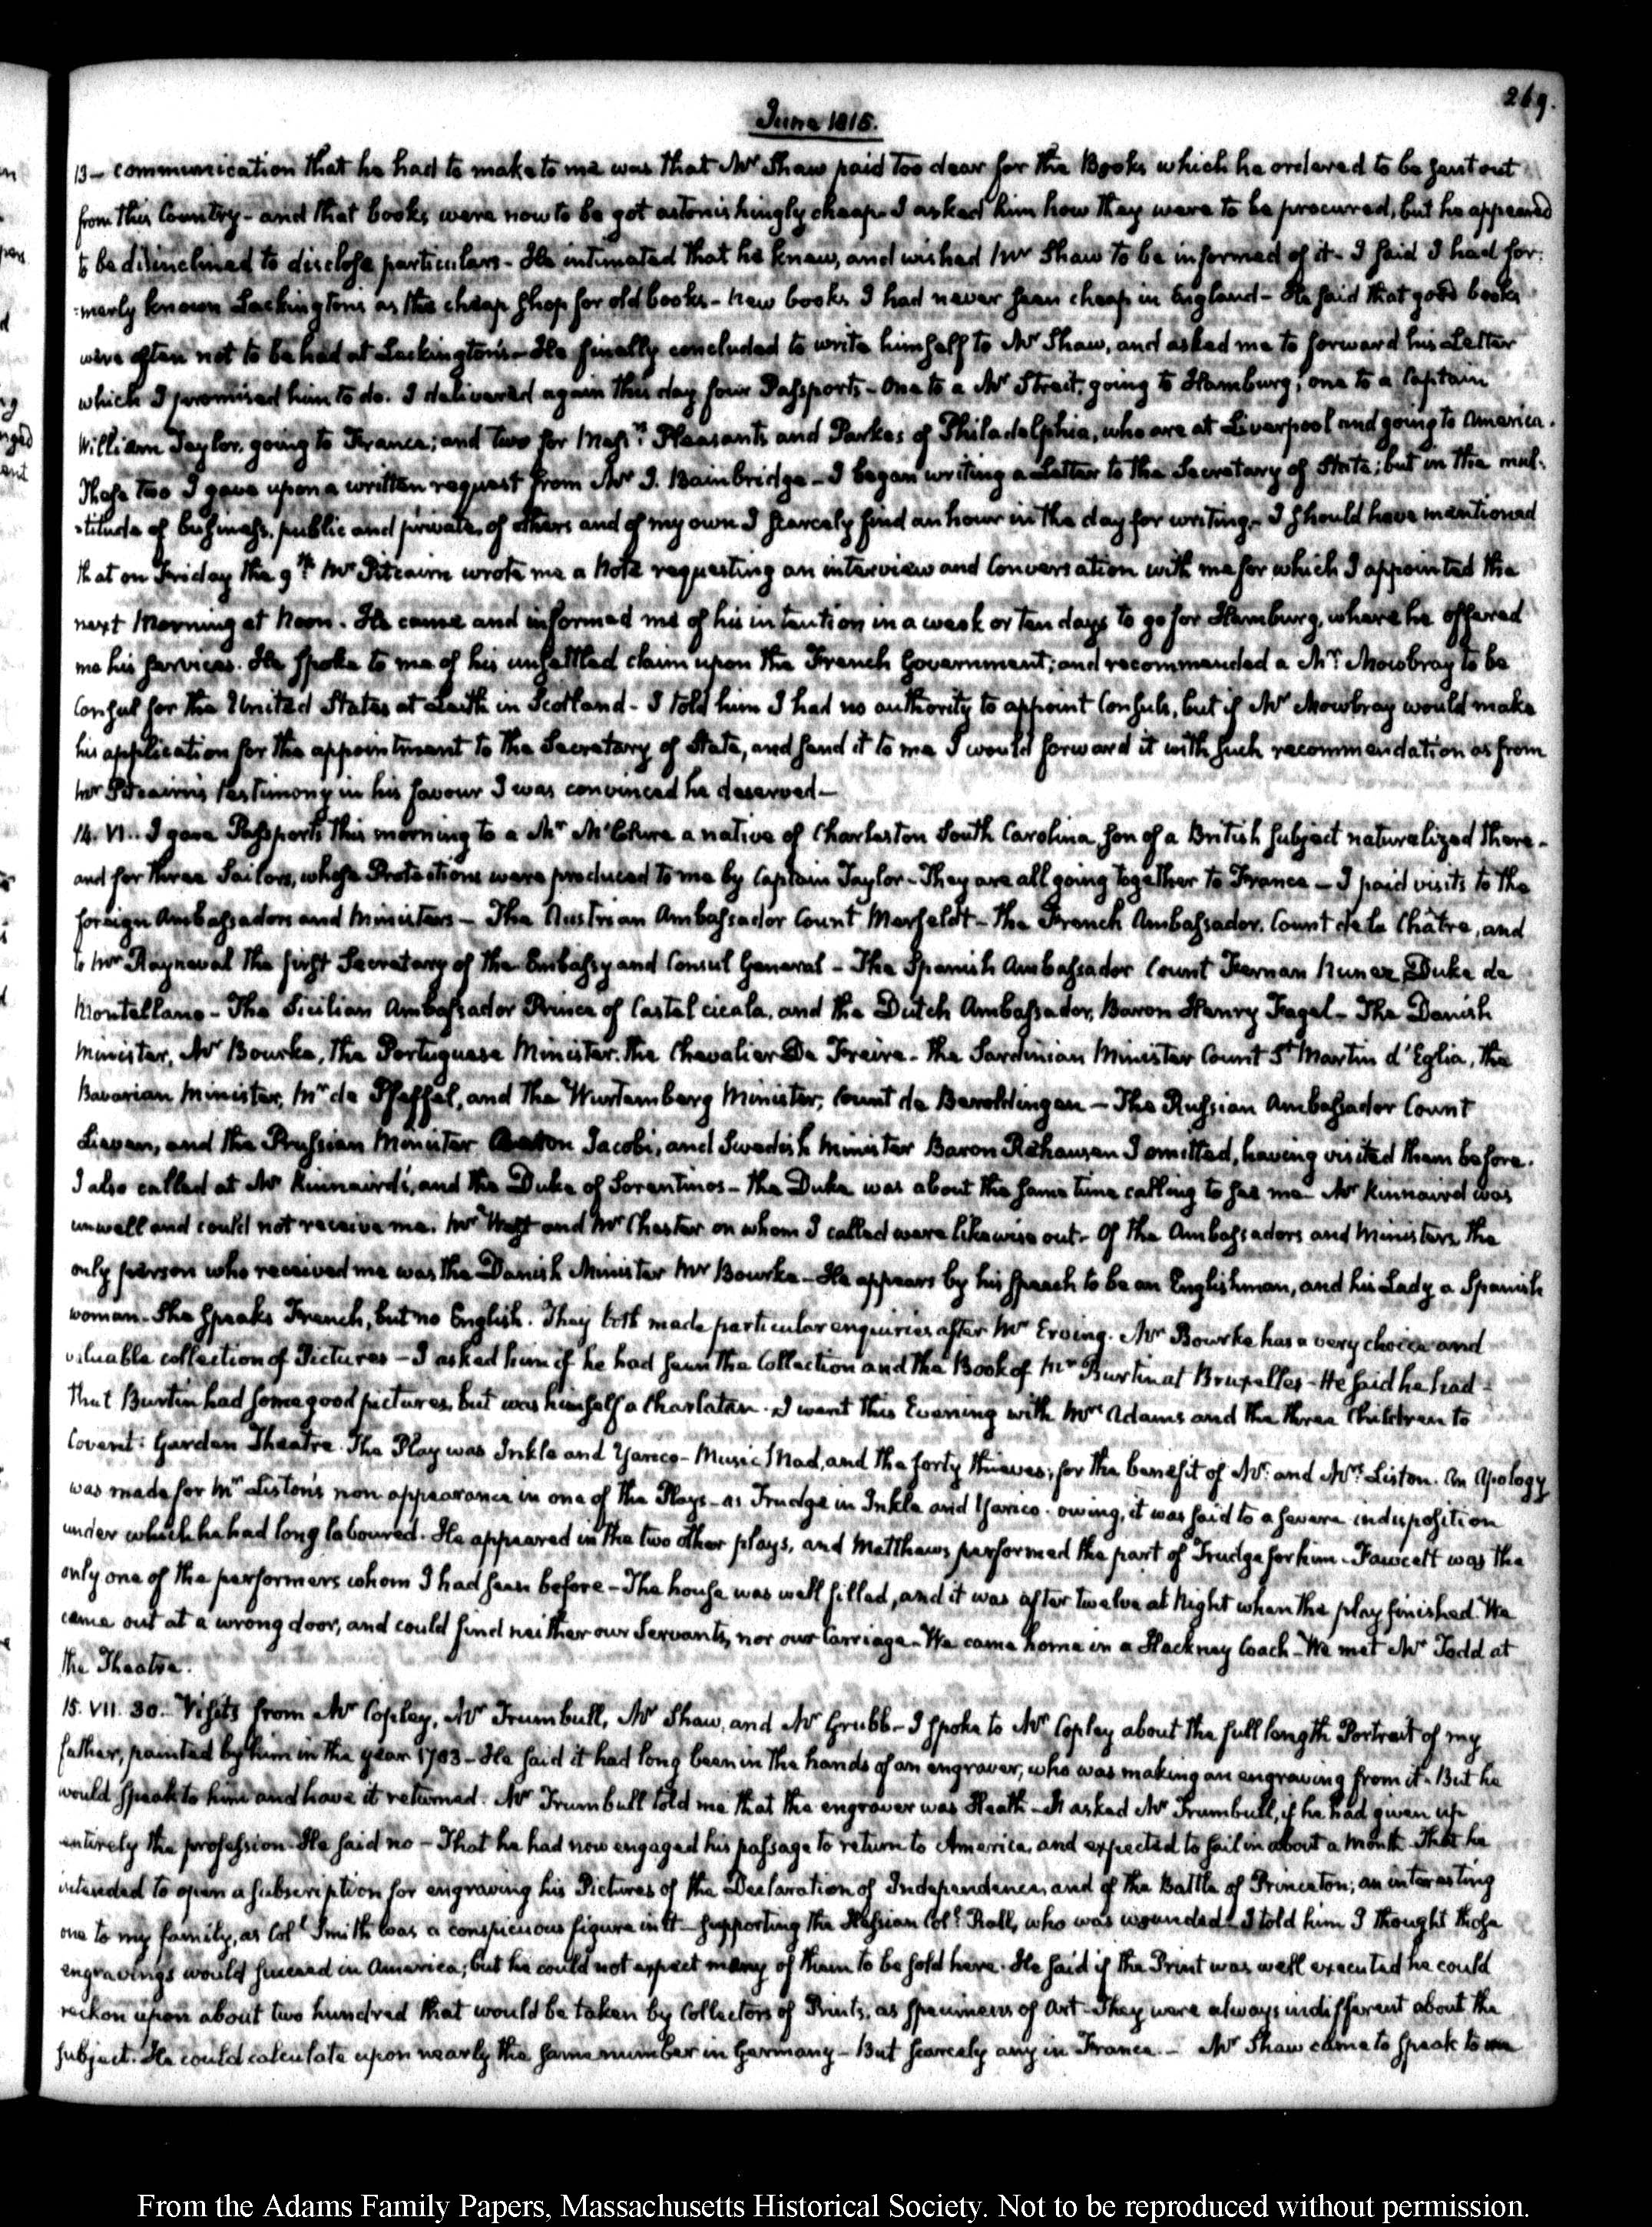 269.
June 1815.
13 – communication that he had to make to me was that Mr Shaw paid too dear for the Books which he ordered to be sent out
from this Country – and that books were now to be got astonishingly cheap – I asked him how they were to be procured, but he appeared
to be disinclined to disclose particulars – He intimated that he knew, and wished Mr Shaw to be informed of it – I said I had for:
:merly known Lackington's as the cheap shop for old books – new books I had never seen cheap in England – He said that good books
were often not to be had at Lackington's – He finally concluded to write himself to Mr Shaw, and asked me to forward his Letter
which I promised him to do. I delivered again this day four Passports – One to a Mr Strait, going to Hamburg; one to a Captain
William Taylor, going to France; and two for Messrs Pleasants and Parkes of Philadelphia, who are at Liverpool and going to America.
These two I gave upon a written request from Mr J. Bainbridge – I began writing a Letter to the Secretary of State; but in the mul:
:titude of business, public and private, of others and of my own I scarcely find an hour in the day for writing – I should have mentioned
that on Friday the 9th Mr Pitcairn wrote me a Note requesting an interview and Conversation with me for which I appointed the
next Morning at Noon. He came and informed me of his intention in a week or ten days to go for Hamburg, where he offered
me his services. He spoke to me of his unsettled claim upon the French Government; and recommended a Mr Mowbray to be
Consul for the United States at Leith in Scotland – I told him I had no authority to appoint Consuls, but if Mr Mowbray would make
his application for the appointment to the Secretary of State, and send it to me I would forward it with such recommendation as from
Mr Pitcairn's testimony in his favour I was convinced he deserved –
14. VI.. I gave Passports this morning to a Mr M'Clure a native of Charleston South Carolina, son of a British subject naturalized there –
and for three Sailors, whose Protections were produced to me by Captain Taylor – They are all going together to France – I paid visits to the
foreign Ambassadors and Ministers – The Austrian Ambassador Count Merfeldt – the French Ambassador, Count de la Châtre, and
to Mr Rayneval the first Secretary of the Embassy and Consul General – The Spanish Ambassador Count Fernan Nunez Duke de
Montellano – The Sicilian Ambassador Prince of Castelcicala, and the Dutch Ambassador, Baron Henry Fagel – The Danish
Minister, Mr Bourke, the Portuguese Minister, the Chevalier De Freire – the Sardinian Minister Count St Martin d'Eglia, the
Bavarian Minister, Mr de Pfeffel, and the Wurtemberg Minister, Count de Beroldingen – The Russian Ambassador Count
Lieven, and the Prussian Minister Baron Jacobi, and Swedish Minister Baron Rehausen I omitted, having visited them before.
I also called at Mr Kinnaird's, and the Duke of Sorentinos – the Duke was about the same time calling to see me – Mr Kinnaird was
unwell and could not receive me. Mr West and Mr Chester on whom I called were likewise out – Of the Ambassadors and Ministers the
only person who received me was the Danish Minister Mr Bourke – He appears by his speech to be an Englishman, and his Lady a Spanish
woman – She speaks French, but no English. They both made particular enquiries after Mr Erving. Mr Bourke has a very choice and
valuable collection of Pictures – I asked him if he had seen the Collection and the Book of Mr Burtin at Bruxelles – He said he had –
that Burtin had some good pictures, but was himself a Charlatan. I went this Evening with Mrs Adams and the three Children to
Covent: Garden Theatre. The Play was Inkle and Yarico – Music Mad, and the forty thieves; for the benefit of Mr and Mrs Liston. An Apology
was made for Mr Liston's non appearance in one of the Plays – as Trudge in Inkle and Yarico – owing, it was said to a severe indisposition
under which he had long laboured. He appeared in the two other plays, and Matthews performed the part of Trudge for him. Fawcett was the
only one of the performers whom I had seen before – The house was well filled, and it was after twelve at Night when the play finished. We
came out at a wrong door, and could find neither our Servants, nor our Carriage – We came home in a Hackney Coach – We met Mr Todd at
the Theatre.
15. VII. 30. Visits from Mr Copley, Mr Trumbull, Mr Shaw, and Mr Grubb – I spoke to Mr Copley about the full length Portrait of my
father, painted by him in the year 1783 – He said it had long been in the hands of an engraver, who was making an engraving from it – But he
would speak to him and have it returned. Mr Trumbull told me that the engraver was Heath – I asked Mr Trumbull, if he had given up
entirely the profession. He said no – That he had now engaged his passage to return to America, and expected to sail in about a Month – That he
intended to open a subscription for engraving his Pictures of the Declaration of Independence, and of the Battle of Princeton; an interesting
one to my family, as Coll Smith was a conspicuous figure in it – supporting the Hessian Coll Rall, who was wounded – I told him I thought those
engravings would succeed in America; but he could not expect many of them to be sold here. He said if the Print was well executed he could
reckon upon about two hundred that would be taken by Collectors of Prints, as specimens of Art – They were always indifferent about the
subject. He could calculate upon nearly the same number in Germany – But scarcely any in France. – Mr Shaw came to speak to me
From the Adams Family Papers, Massachusetts Historical Society. Not to be reproduced without permission.